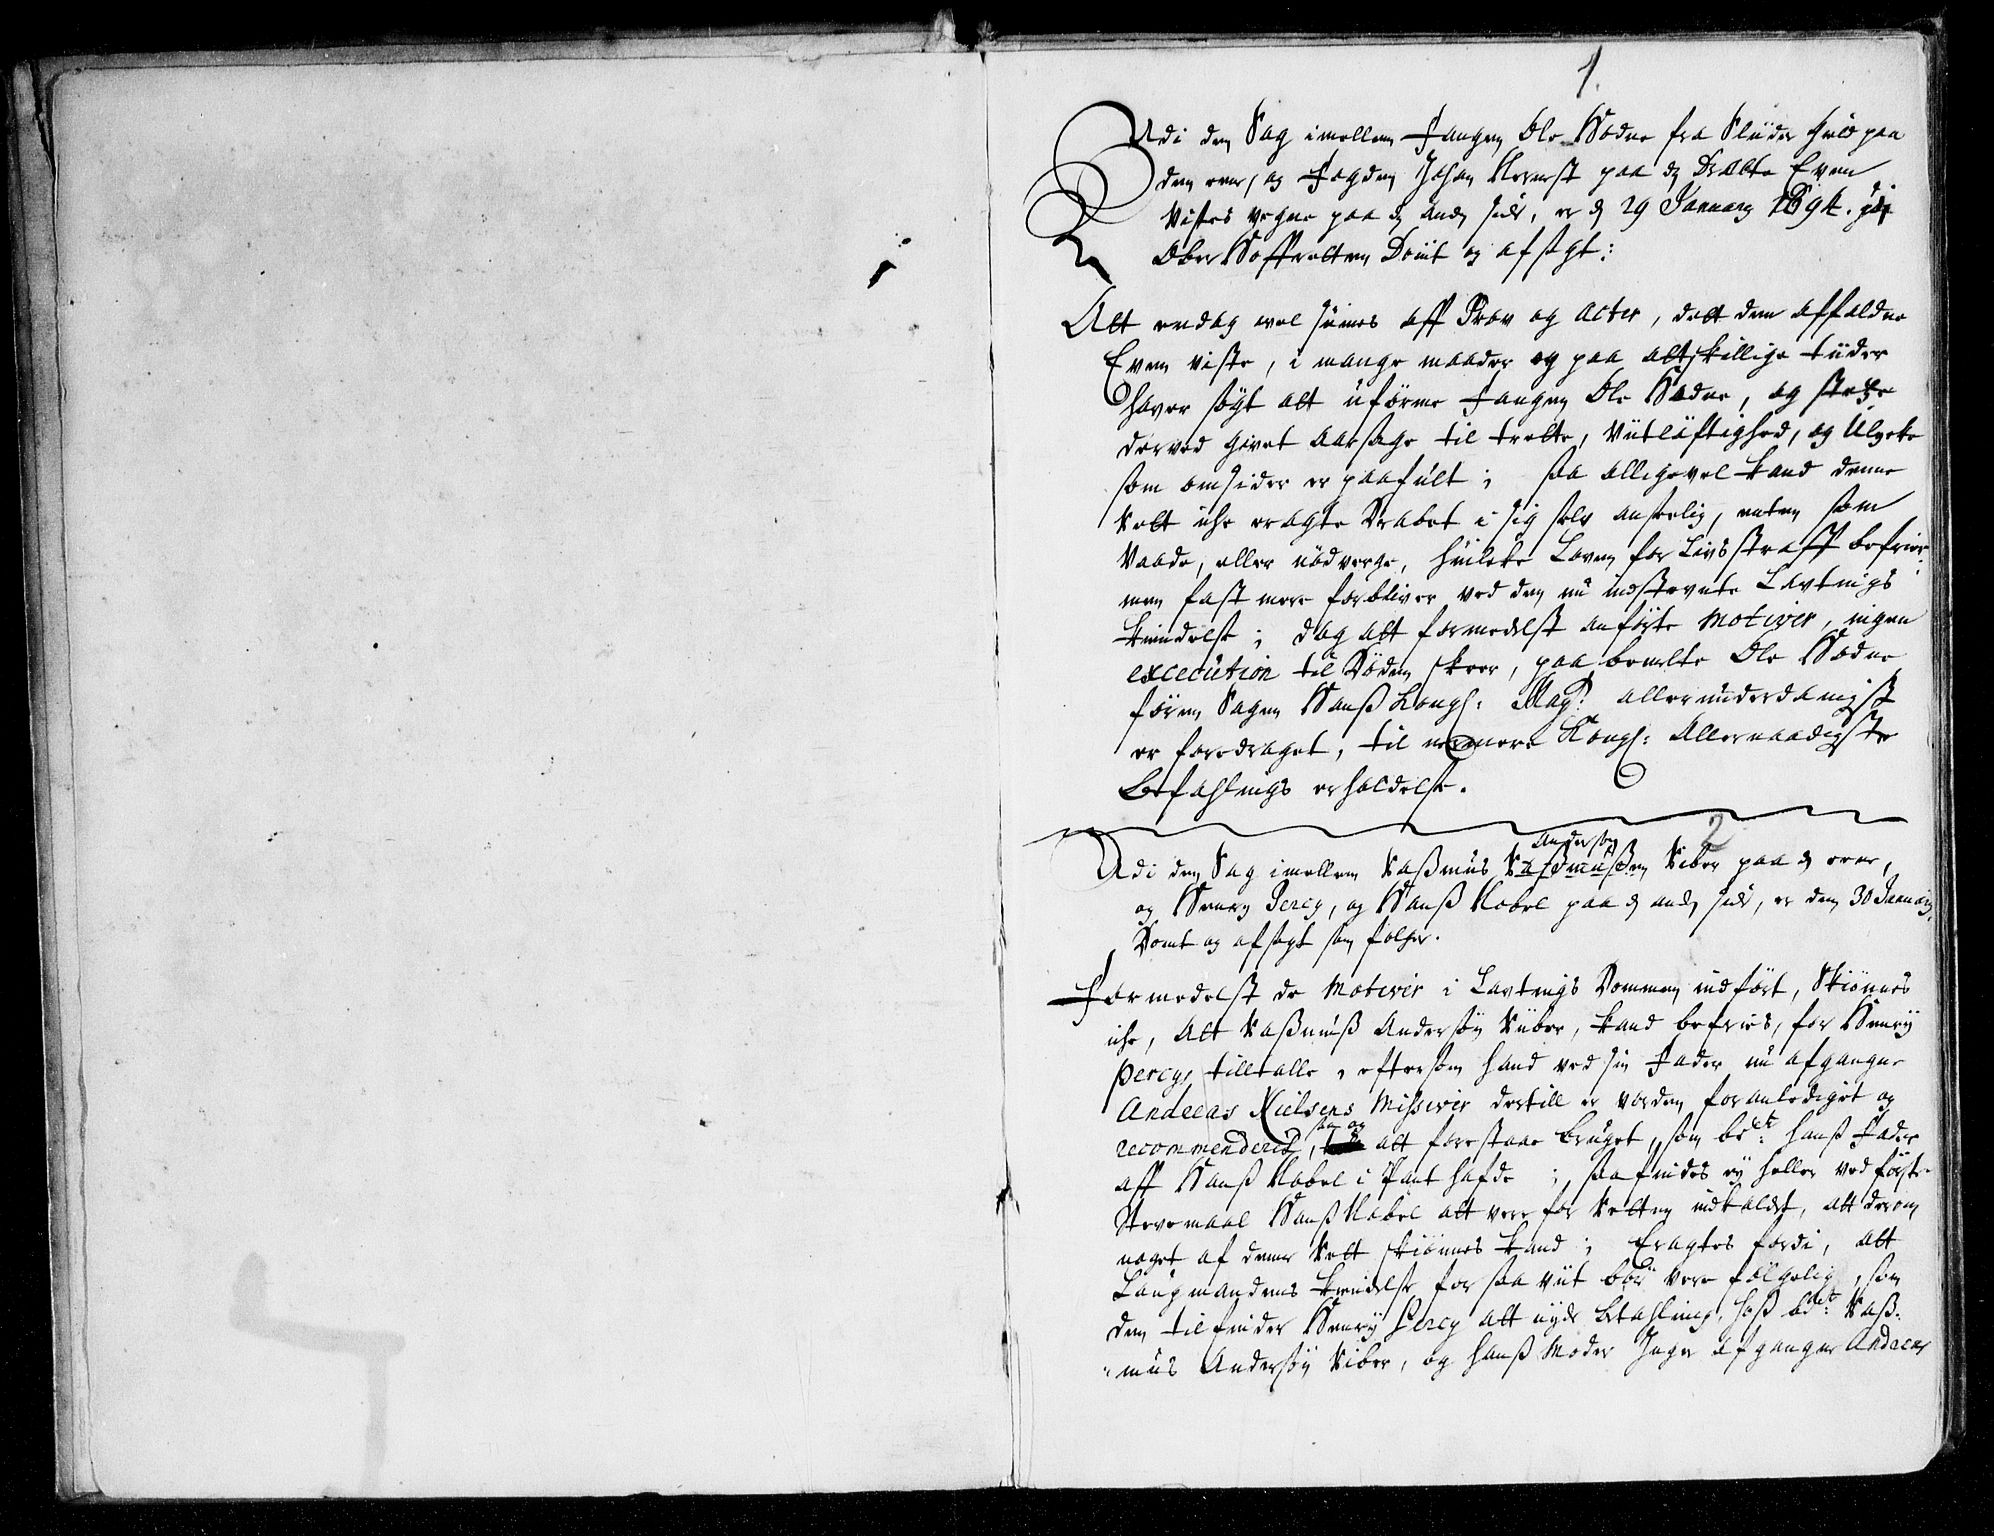 1.
Udi den Sag imellem Fangen Ole Hodne fra Sluder Hied paa
den eene, og Fogden Johan Knerst paa dend Drabte Even
Vistes vegne paa dend anden side, er dend 29 Januarij 1694. udj
Ober Hoffretten Dömt og afsagt:
Alt endog vel siunes aff Prov og Acter, dett den affaldne
Even viste, i mange maader og paa attskillige tiider
haver sögt att uforme Fangen Ole Hodne, og stetze
derved givet aarsage til trette, viitlöftighed, og Ulycke
som omsider er paafult; saa alligevel kand denne
Rett iche eragte Drabet i sig selv anseelig, enten som
Vaade, eller nödverge, huilcke Loven for Livsstraff befrier:
men fast mere forbliver ved den nu indstevnte Lavtings
kiendelse; dog att formedelst anförte motiver, ingen
excecution til Döden skeer, paa bemelte Ole Hodne
förren Sagen Hanß Kongl: Mayt: allerunderdanigst
er foredraget, til nermere Kongl: Allernaadigste
Befahlings erholdelse.
2
Anderson
Udi den Sag imellem Raßmus Raßmußen Riber paa d eene,
og Henry Percy, og Hanß Nobel paa d anden side, er den 30 Januarij.
Domt og afsagt som fölger.
Formedelst de motiver i Lavtings Dommen indfört, Skiönnes
iche, Att Raßmuß Andersön Riber, kand befries, for Henrÿ
Percys tilltalle, eftersom hand ved sin Fader nu afgangne
Andreas Nielsens Missiver dertill er vorden foranlediget og
saa og
recommenderet, att forestaae bruget, som bete: hanß Fader
aff Hanß Nobel i Pant hafde; saa findes ey heller ved förste
Stevemaal Hanß Nobel att vere for Retten indkaldet, att derom
noget af denne Rett skiönnes kand; Eragtes fordi, att
Laugmandens kiendelse for saa viit bör vere fölgelig, som
den tilfinder Henry Percy att nyde betahling, hoß bete: Raß-
mus Andersön Riber, og hanß Moder Inger afgangne Andreas